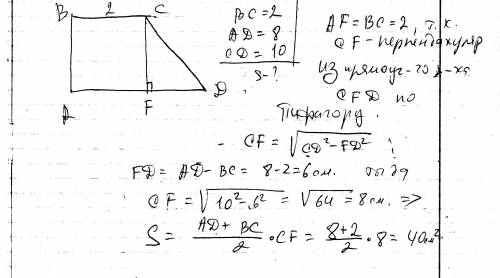 B 2 C
A F D
BC=2
AD=8
CD=10
S-?
AF=BC=2, т.к.
CF-перпендикуляр
Из прямоуг-го Δ-ка
CFD по
Пифагору
CF = √CD²-FD²
FD= AD-BC = 8-2=6см. тогда
CF = √10²-6² = √64 = 8см. =>
S= AD+BC/2 · CF = 8+2/2 · 8 = 40см²